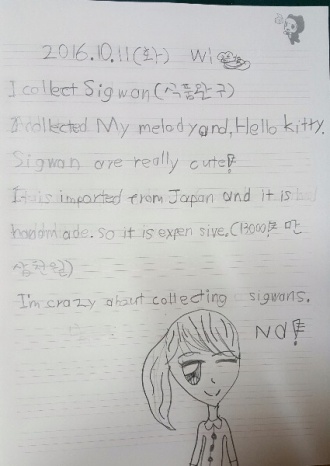 2016.10.11(화) Wi
I collect Sigwan(식품완구)
I collected My melody and, Hello kitty.
Sigwan are really cute!
It is imported from Japan and it is
handmade. so it is expensive.(13000원 만
삼천원)
I'm crazy about collecting sigwans.